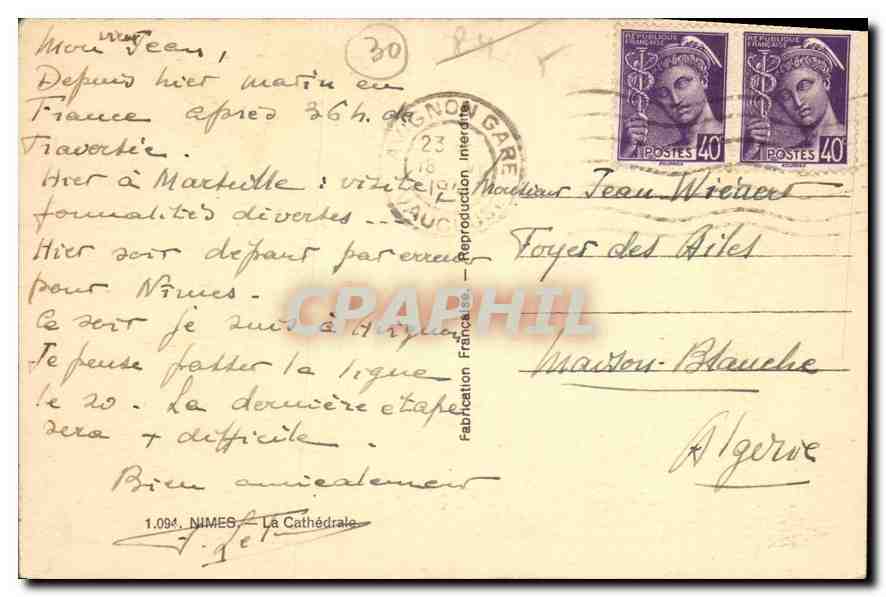 Mon vieux Jean,
Depuis hier matin en
France après 36 h. de
Traversée.
Hier à Marseille : visite
formalités diverses ...
Hier soir départ par erreur
pour Nîmes.
Ce soir je suis à Avignon
Je pense passer la ligne
le 20. La dernière étape
sera + difficile.
Bien amicalement
1.094. NIMES. — La Cathédrale
30
84
AVIGNON GARE
23
18
VAUCLUSE
Fabrication Française. — Reproduction Interdite.
RÉPUBLIQUE FRANÇAISE
POSTES 40c
RÉPUBLIQUE FRANÇAISE
POSTES 40c
Monsieur Jean
Foyer des Ailes
Maison-Blanche
Algérie
CPAPHIL